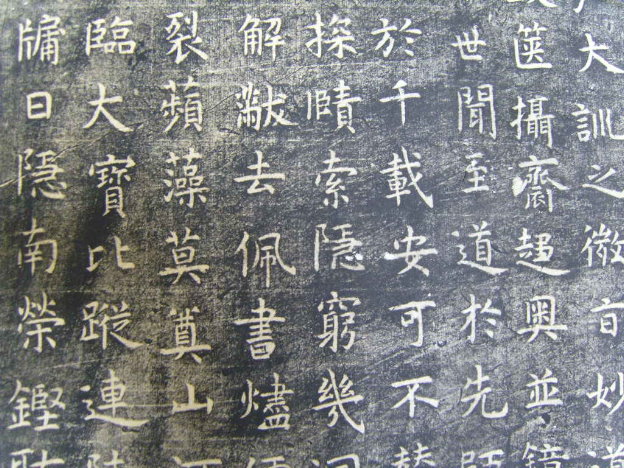 大訓之微旨妙道
篋攝齋超奧並鏡
世聞至道於先師
於千載安可不
探賾索隱窮幾洞
解黻去佩書燼儒
裂蘋藻莫奠山河
臨大寶比蹤連
牖日隱南榮鏗